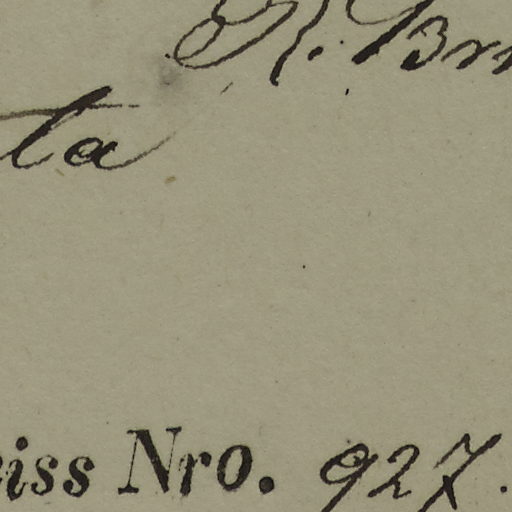 R. Br
ta
iss Nro. 927.